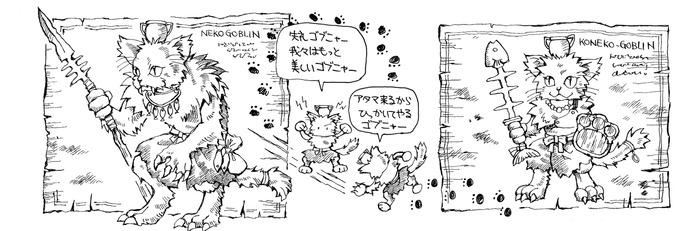 NEKO GOBLIN
失礼ゴブニャー
我々はもっと
美しいゴブニャー
アタマ来るから
ひっかいてやる
ゴブニャー
KONEKO-GOBLIN